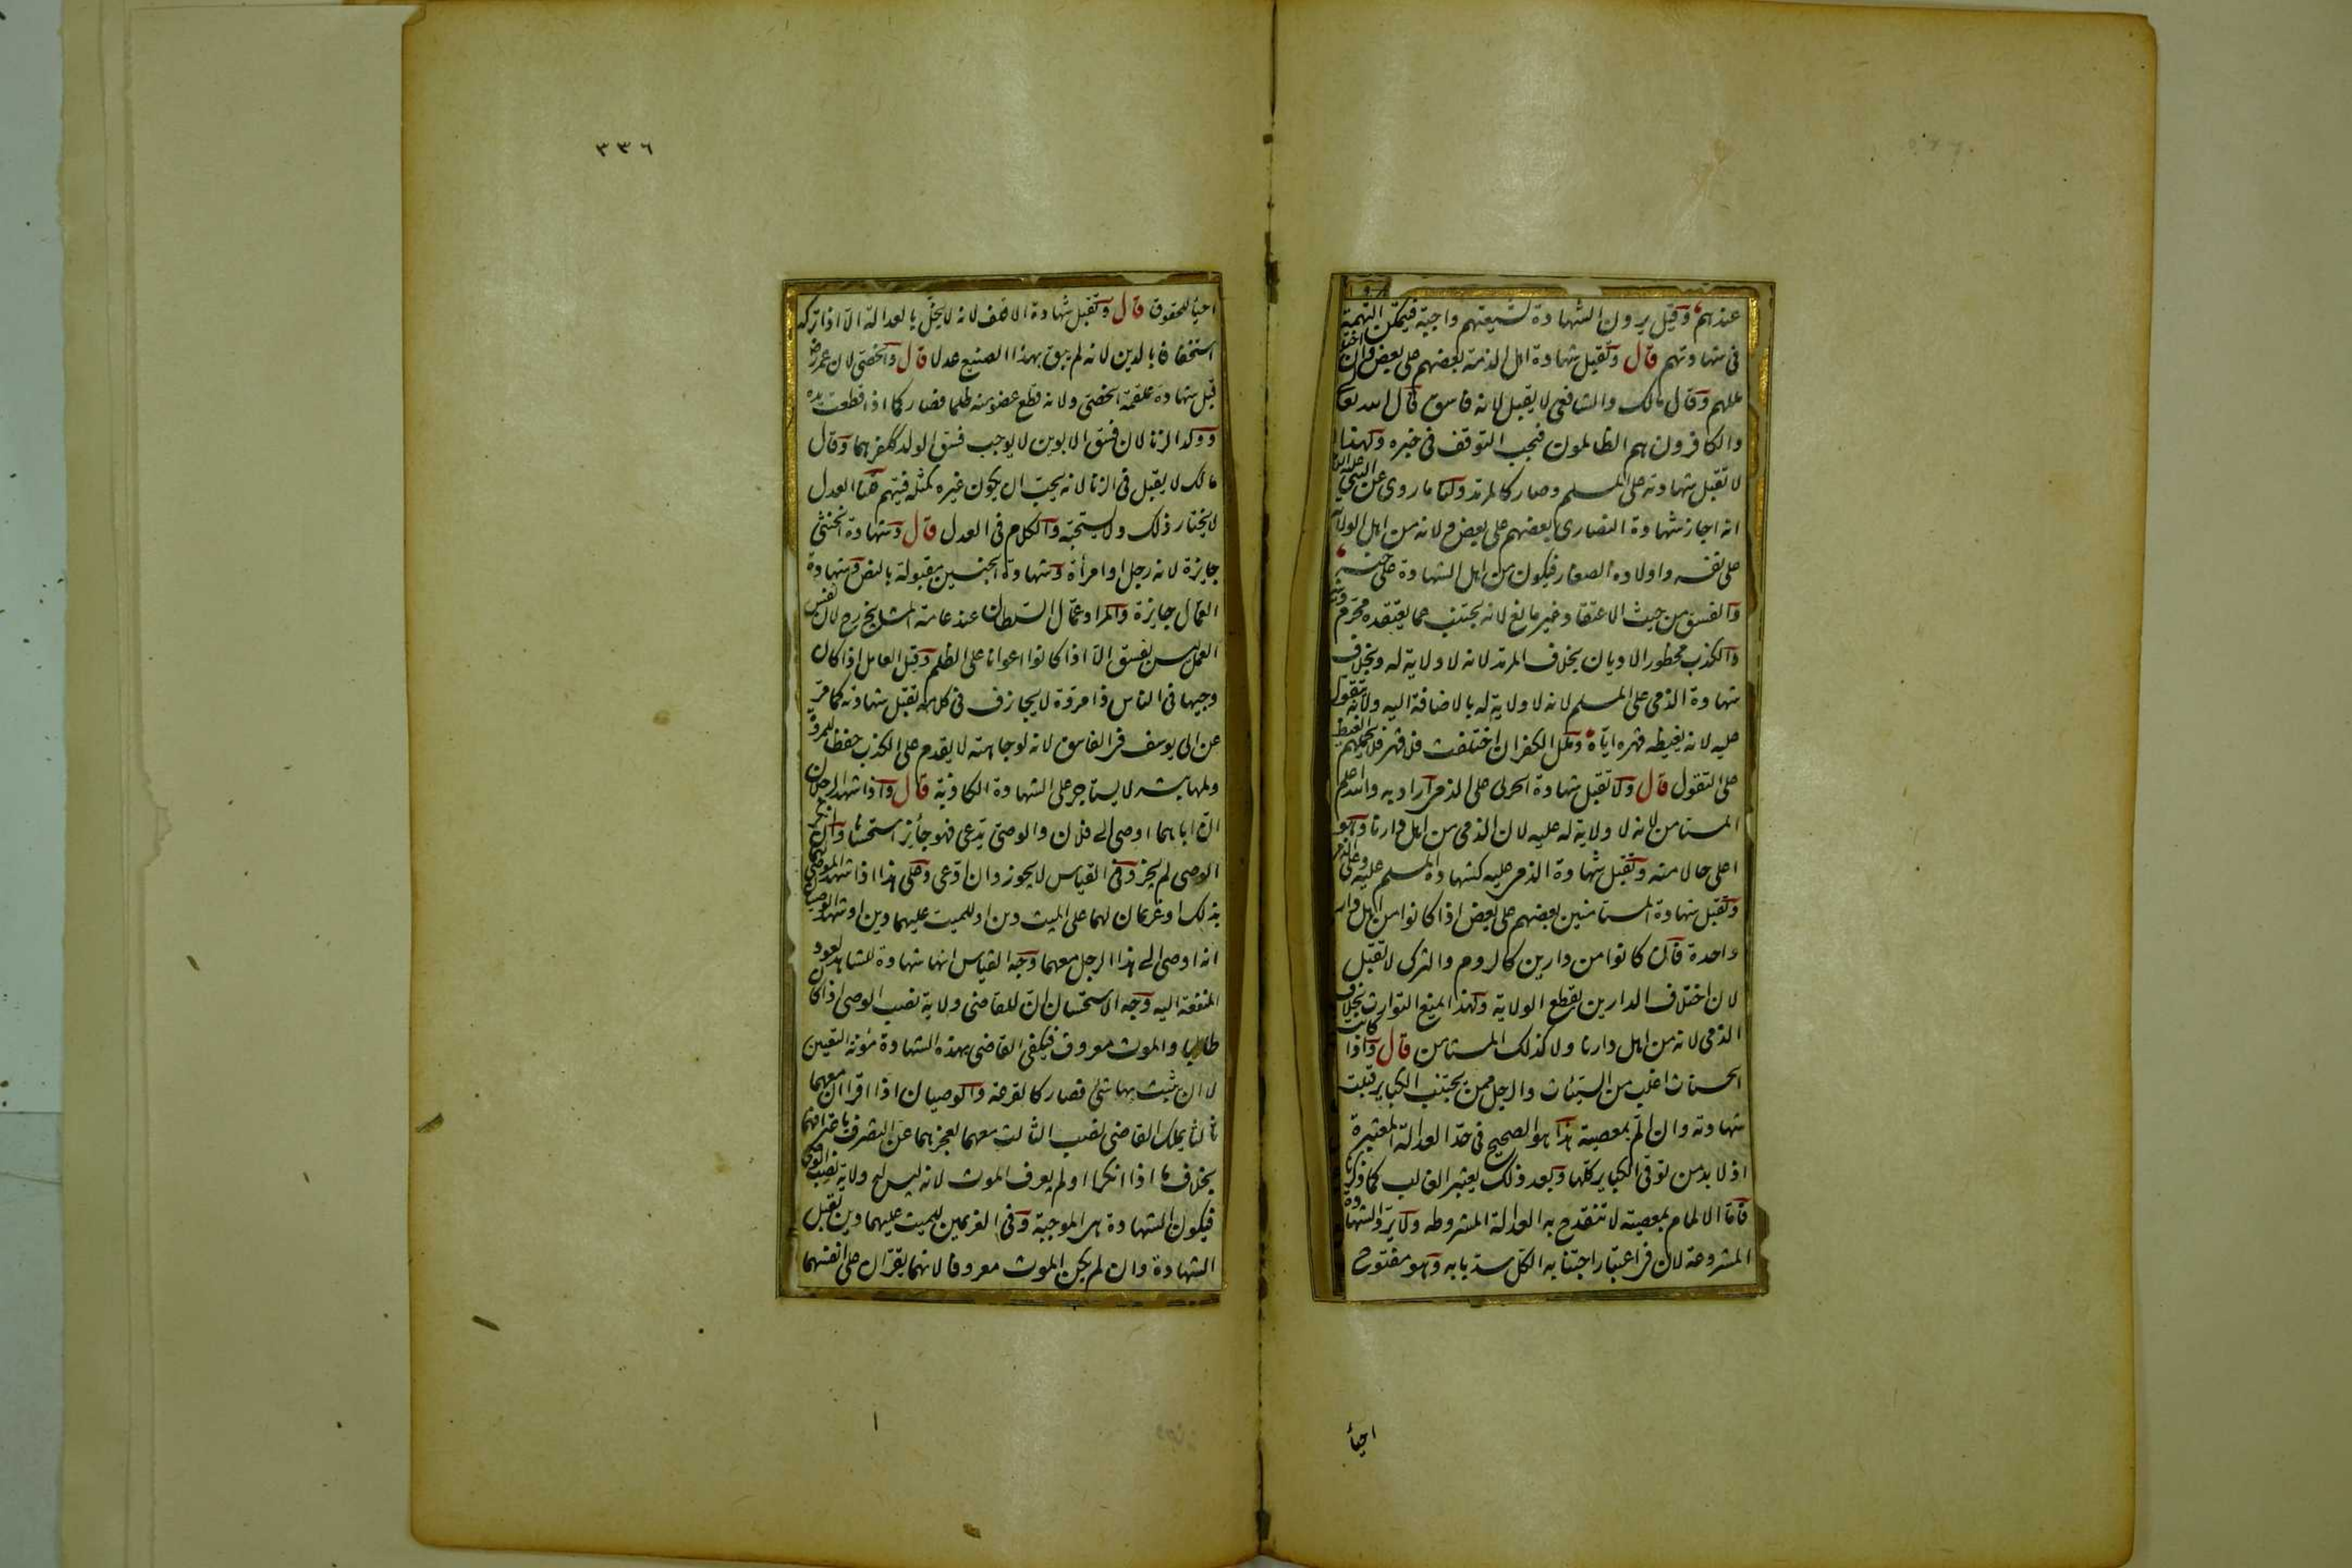 عندهم وقيل يرون الشهادة لشيعتهم واجبة فتمكن التهمة
فى شهادتهم قال وتقبل شهادة اهل الذمة بعضهم على بعض وان اختلفت
مللهم وقال مالك والشافعى لا يقبل لانه فاسق قال الله تعا
والكافرون هم الظالمون فيجب التوقف فى خبره ولهذا
لا تقبل شهادته على المسلم وصار كالمرتد ولنا ما روى عن النبى عليه السلام
انه اجاز شهادة النصارى بعضهم على بعض ولانه من اهل الولاية
على نفسه واولاده الصغار فيكون من اهل الشهادة على جنسه
والفسق من حيث الاعتقاد غير مانع لانه يجتنب عما يعتقده محرم دينه
والكذب محظور الاديان بخلاف المرتد لانه لا ولاية له وبخلاف
شهادة الذمى على المسلم لانه لا ولاية له بالاضافة اليه ولانه يتقول
عليه لانه يغيظه قهره اياه وملل الكفر ان اختلفت فلا قهر فلا يحملهم الغيظ
على التقول قال ولا تقبل شهادة الحربى على الذمى اراد به والله اعلم
المستامن لانه لا ولاية له عليه لان الذمى من اهل دارنا وهو
اعلى حالا منه وتقبل شهادة الذمى عليه كشهادة المسلم عليه وعلى الذمى
وتقبل شهادة المستامنين بعضهم على بعض اذا كانوا من اهل دار
واحدة فان كانوا من دارين كالروم والترك لا تقبل
لان اختلاف الدارين يقطع الولاية ولهذا يمنع التوارث بخلاف
الذمى لانه من اهل دارنا ولا كذلك المستامن قال واذا كانت
الحسنات اغلب من السيئات والرجل ممن يجتنب الكباير قبلت
شهادته وان الم بمعصية هذا هو الصحيح فى حد العدالة المعتبرة
اذ لا بد من توقى الكباير كلها وبعد ذلك يعتبر الغالب كما ذكرنا
فاما الالمام بمعصية لا تنقدح به العدالة المشروطه ولا يرد الشهادة
المشروعة لان فى اعتبار اجتنابه الكل سد بابه وهو مفتوح
احياء
٣٣٦
احياء للحقوق قال وتقبل شهادة الاقلف لانه لا يخل بالعدالة الا اذا تركه
استخفافا بالدين لانه لم يبق بهذا الصنيع عدلا قال والخصى لان عمر رض
قبل شهادة علقمة الخصى ولانه قطع عضو منه ظلما فصار كما اذا قطعت يده
وولد الزنا لان فسق الابوين لا يوجب فسق الولد ككفرهما وقال
مالك لا يقبل فى الزنا لانه يحب ان يكون غيره كمثله فيتهم قلنا العدل
لا يختار ذلك ولا يستحبه والكلام فى العدل قال وشهادة الخنثى
جايزة لانه رجل او امرأة وشهادة الجنسين مقبولة بالنص وشهادة
العمال جايزة والمراد عمال السلطان عند عامة المشايخ رح لان نفس
العمل ليس بفسق الا اذا كانوا اعوانا على الظلم وقيل العامل اذا كان
وجيها فى الناس ذا مروة لا يجازف فى كلامه تقبل شهادته كما مر
عن ابى يوسف فى الفاسق لانه لوجاهته لا يقدم على الكذب حفظا للمروة
ولمهابته لا يستاجر على الشهادة الكاذبة قال واذا شهد الرجلان
ان اباهما اوصى الى فلان والوصى يدعى فهو جائز استحسانا وان انكر
الوصى لم يجز وفى القياس لا يجوز وان ادعى وعلى هذا اذا شهد الموصى لهما
بذلك او غريمان لهما على الميت دين او للميت عليهما دين او شهد الوصيان
انه اوصى الى هذا الرجل معهما وجه القياس انها شهادة للشاهد لعود
المنفعة اليه وجه الاستحسان ان للقاضى ولاية نصب الوصى اذا كان
طالبا والموت معروف فيكفى القاضى بهذه الشهادة مؤنة التعيين
لا ان يثبت بها شئ فصار كالقرعة والوصيان اذا اقرا ان معهما
ثالثا يملك القاضى نصب الثالث معهما لعجزهما عن التصرف باعترافهما
بخلاف ما اذا انكرا ولم يعرف الموت لانه ليس له ولاية نصب الوصى
فيكون الشهادة هى الموجبة وفى الغريمين للميت عليهما دين تقبل
الشهادة وان لم يكن الموت معروفا لانهما يقران على انفسهما